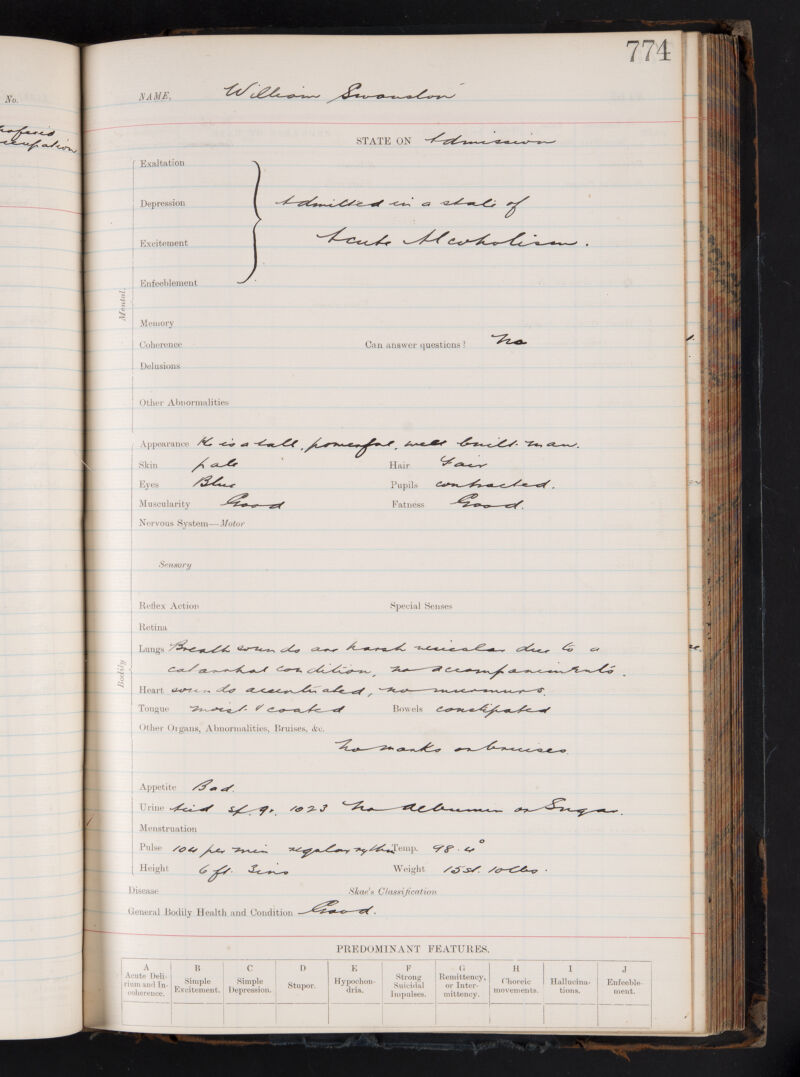 774
No.
NAME, William Swanston
STATE ON Admission
Mental.
Exaltation
Depression
Admitted in a state of
Excitement
Acute Alcoholism.
Enfeeblement
Memory
Coherence Can answer questions? No
Delusions
Other Abnormalities
Bodily
Appearance He is a tall, powerful, well built man.
Skin pale Hair Fair
Eyes Blue Pupils contracted.
Muscularity Good Fatness Good.
Nervous System—Motor
Sensory
Reflex Action Special Senses
Retina
Lungs Breath sounds are harsh vesicular due to a
catarrhal condition, no accompaniments.
Heart sounds accentuated, no murmurs.
Tongue moist & coated Bowels constipated
Other Organs, Abnormalities, Bruises, &c.
No marks or bruises.
Appetite Bad.
Urine Acid Sp. gr. 1023 No albumen or Sugar.
Menstruation
Pulse 104 per min regular rythm Temp. 98.4°
Height 6 ft. 3ins Weight 15st. 10lbs.
Disease Skae's Classification
General Bodily Health and Condition Good.
PREDOMINANT FEATURES.
A B C D E F G H I J
Acute Deli- Simple Simple Stupor. Hypochon- Strong Remittency, Choreic Hallucina- Enfeeble-
rium and In- Excitement. Depression. dria. Suicidal or Inter- movements. tions. ment.
coherence. Impulses. mittency.